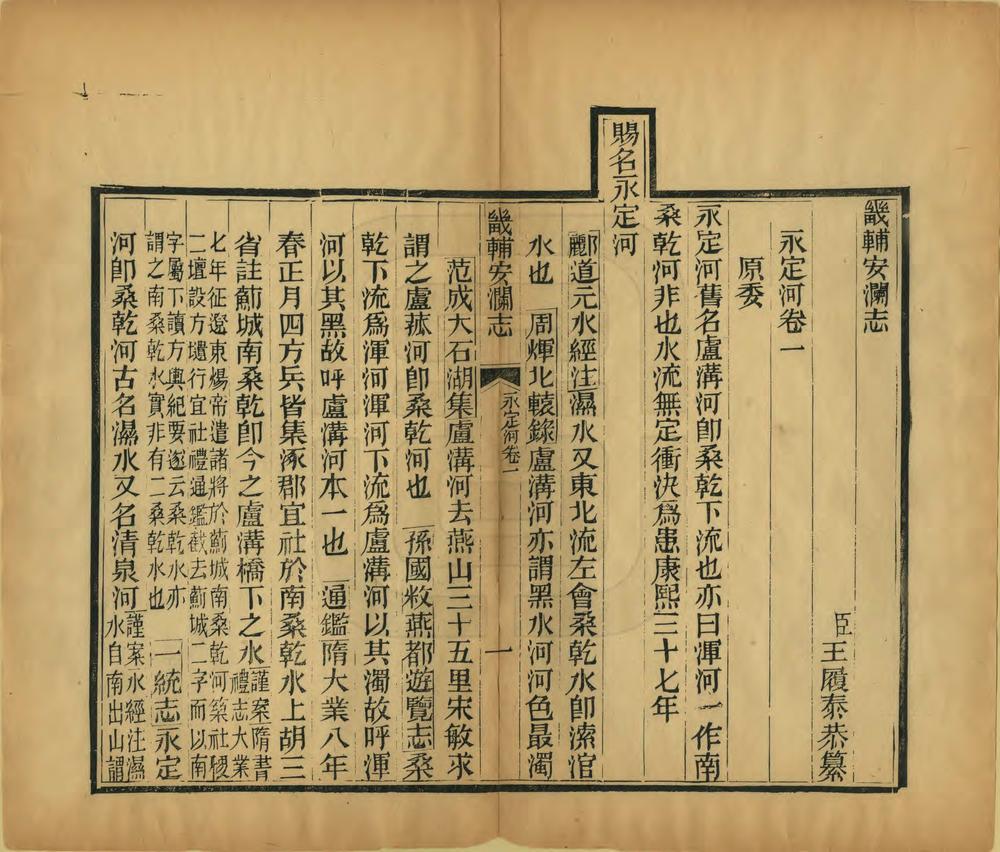 畿輔安瀾志
臣王履泰恭纂
永定河卷一
原委
永定河舊名盧溝河卽桑乾下流也亦曰渾河一作南
桑乾河非也水流無定衝決爲患康熙三十七年
賜名永定河
酈道元水經注濕水又東北流左會桑乾水卽㶟涫
水也 周煇北轅錄盧溝河亦謂黑水河河色最濁
畿輔安瀾志 永定河卷一 一
范成大石湖集盧溝河去燕山三十五里宋敏求
謂之盧菰河卽桑乾河也 孫國敉燕都遊覽志桑
乾下流爲渾河渾河下流爲盧溝河以其濁故呼渾
河以其黑故呼盧溝河本一也 通鑑隋大業八年
春正月四方兵皆集涿郡宜社於南桑乾水上胡三
省註薊城南桑乾卽今之盧溝橋下之水謹案隋書
禮志大業
七年征遼東煬帝遣諸將於薊城南桑乾河築社稷
二壇設方壝行宜社禮通鑑截去薊城二字而以南
字屬下讀方輿紀要遂云桑乾水亦
謂之南桑乾水實非有二桑乾水也 一統志永定
河卽桑乾河古名濕水又名清泉河謹案水經注濕
水自南出山謂